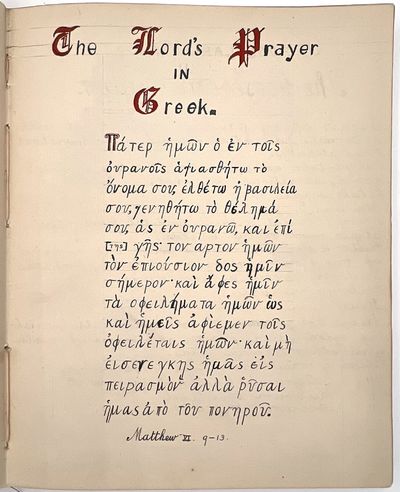 The Lord's Prayer
IN
Greek.
Πάτερ ἡμῶν ὁ ἐν τοῖς
οὐρανοῖς ἁγιασθήτω τὸ
ὄνομα σου, ἐλθέτω ἡ βασιλεία
σου, γενηθήτω τὸ θέλημά
σου, ὡς ἐν οὐρανῶ, καὶ ἐπί
[της] γῆς· τον αρτον ἡμῶν
τὸν ἐπιούσιον δος ἡμῖν
σήμερον· καὶ ἄφες ἡμῖν
τὰ οφειλήματα ἡμῶν ὡς
καὶ ἡμεῖς ἀφίεμεν τοῖς
ὀφειλέταις ἡμῶν· καὶ μὴ
εἰσενεγκης ἡμᾶς εἰς
πειρασμὸν ἀλλὰ ῥῦσαι
ἡμας ἀπὸ τοῦ πονηροῦ.
Matthew VI. 9-13.